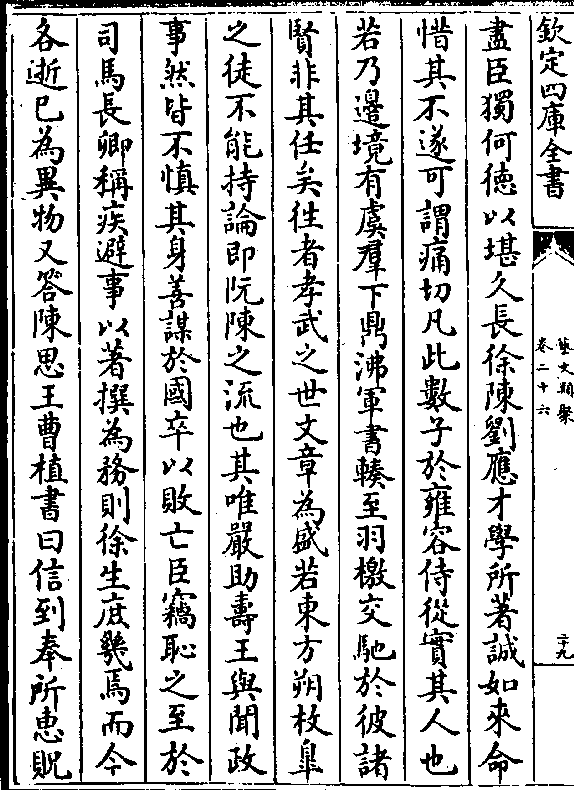 欽定四庫全書
藝文類聚
卷二十六
二十九
盡臣獨何徳以堪久長徐陳劉應才學所著誠如來命
惜其不遂可謂痛切凡此數子於雍容侍從實其人也
若乃邊境有虞羣下鼎沸軍書輳至羽檄交馳於彼諸
賢非其任矣徃者孝武之世文章為盛若東方朔枚臯
之徒不能持論即阮陳之流也其唯嚴助壽王與聞政
事然皆不慎其身善謀於國卒以敗亡臣竊恥之至於
司馬長卿稱疾避事以著撰為務則徐生庶幾焉而今
各逝已為異物又答陳思王曹植書曰信到奉所惠貺